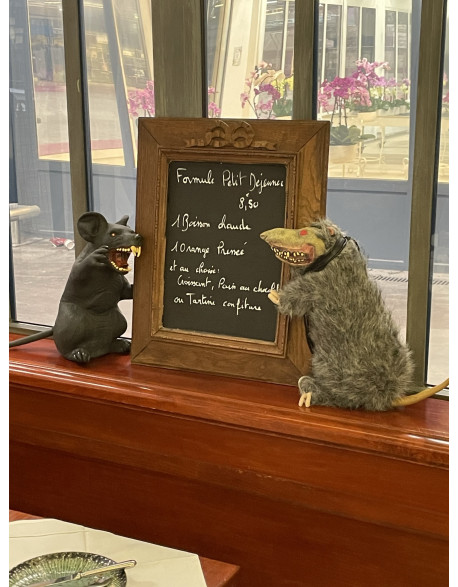 Formule Petit Dejeuner
8,50
1 Boisson chaude
1 Orange Pressé
et au choix:
Croissant, Pain au chocola
ou Tartine confiture